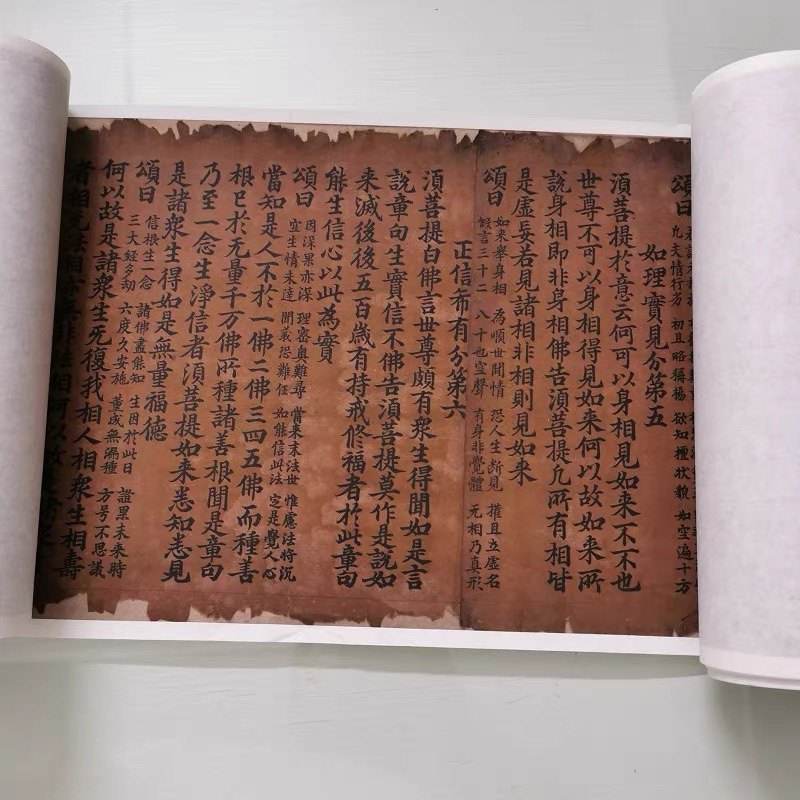 頌曰
凡夫情行劣 初且略稱揚 欲知檀狀貌 如空遍十方
如理實見分第五
須菩提於意云何可以身相見如來不不也
世尊不可以身相得見如來何以故如來所
說身相即非身相佛告須菩提凡所有相皆
是虛妄若見諸相非相則見如來
頌曰 如來舉身相 為順世間情 恐人生斷見 權且立虛名
假言三十二 八十也空聲 有身非覺體 无相乃真形
正信希有分第六
須菩提白佛言世尊頗有衆生得聞如是言
說章句生實信不佛告須菩提莫作是說如
來滅後後五百歲有持戒修福者於此章句
能生信心以此為實
頌曰 因深果亦深 理密奧難尋 當來末法世 惟慮法將沉
空生情未達 聞義恐難任 如能信此法 定是覺人心
當知是人不於一佛二佛三四五佛而種善
根已於无量千万佛所種諸善根聞是章句
乃至一念生淨信者須菩提如來悉知悉見
是諸衆生得如是無量福德
頌曰 信根生一念 諸佛盡能知 生因於此日 證果未來時
三大經多劫 六度久安施 薰成無漏種 方号不思議
何以故是諸衆生无復我相人相衆生相壽
者相无法相亦无非法相何以故